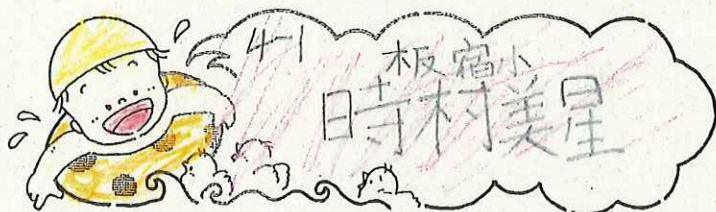 4-1
板宿小
時村美星